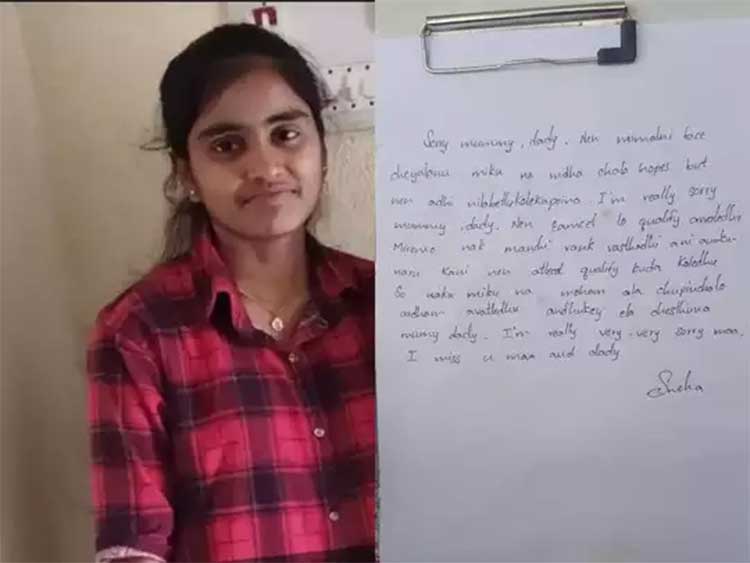 Sorry mummy, dady. Nen mimalni face
cheyalanu miku na midha chala hopes but
nen adhi nilabettukolekapoina. I'm really sorry
mummy, dady. Nen Eamcet lo qualify avaledhu
Miremo nak manchi rank vasthadhi ani anukun
naru Kani nen atleast qualify kuda kaledhu
So naku miku na moham ela chupinchalo
ardham avathledhu andhukey ela chesthunna
mumy dady. I'm really very-very sorry maa,
I miss u maa and dady
Sneha